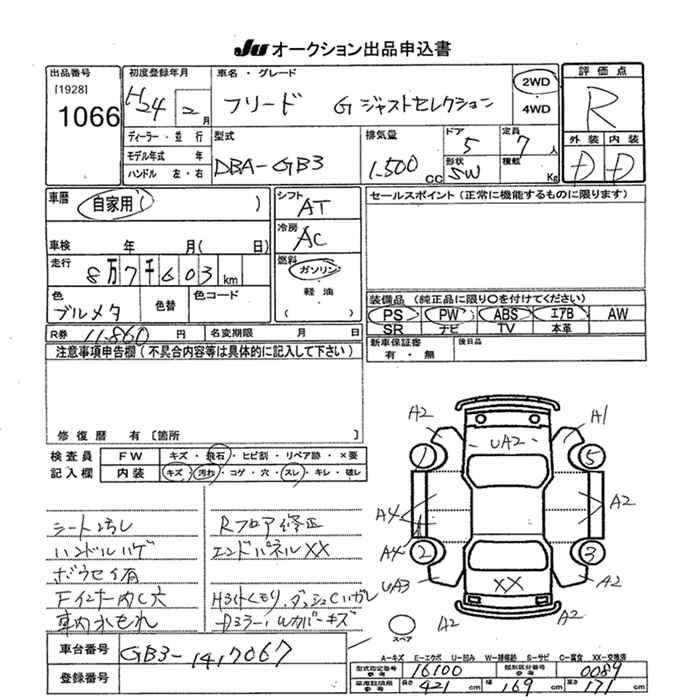 JU オークション出品申込書
出品番号
[1928]
1066
初度登録年月
H24 2月
車名・グレード
フリード G ジャストセレクション
2WD
4WD
評価点
R
ディーラー・並行
モデル年式 年
ハンドル 左・右
型式
DBA-GB3
排気量
1.500 CC
ドア
5
形状
SW
定員
7 人
積載
Kg
外装 内装
D D
車歴
自家用( )
シフト
AT
セールスポイント(正常に機能するものに限ります)
車検 年 月( 日)
冷房
AC
走行
8万7千603 km
燃料
ガソリン
軽油
( )
色
ブルメタ
色替
色コード
装備品(純正品に限り○を付けてください)
PS PW ABS エアB AW
SR ナビ TV 本革
R券 11.860 円 名変期限 月 日
新車保証書
有・無
後日品
注意事項申告欄(不具合内容等は具体的に記入して下さい)
修復歴 有[箇所
検査員
記入欄
FW キズ・飛石・ヒビ割・リペア跡・×要
内装 キズ・汚れ・コゲ・穴・スレ・キレ・破レ
シート汚し
ハンドルハゲ
ボウセイ有
車内水もれ
Rフロア修正
エンドパネルXX
A2
UA2
A1
1
5
A4
A2
A4
2
3
UA3
XX
A2
A2
A2
スペア
車台番号
GB3-1417067
登録番号
A-キズ E-エクボ U-凹み W-補修跡 S-サビ C-腐食 XX-交換済
型式指定番号 参考 16100 類別区分番号 参考 0089
車庫証明用 参考 長さ 421 cm 幅 169 cm 高さ 171 cm